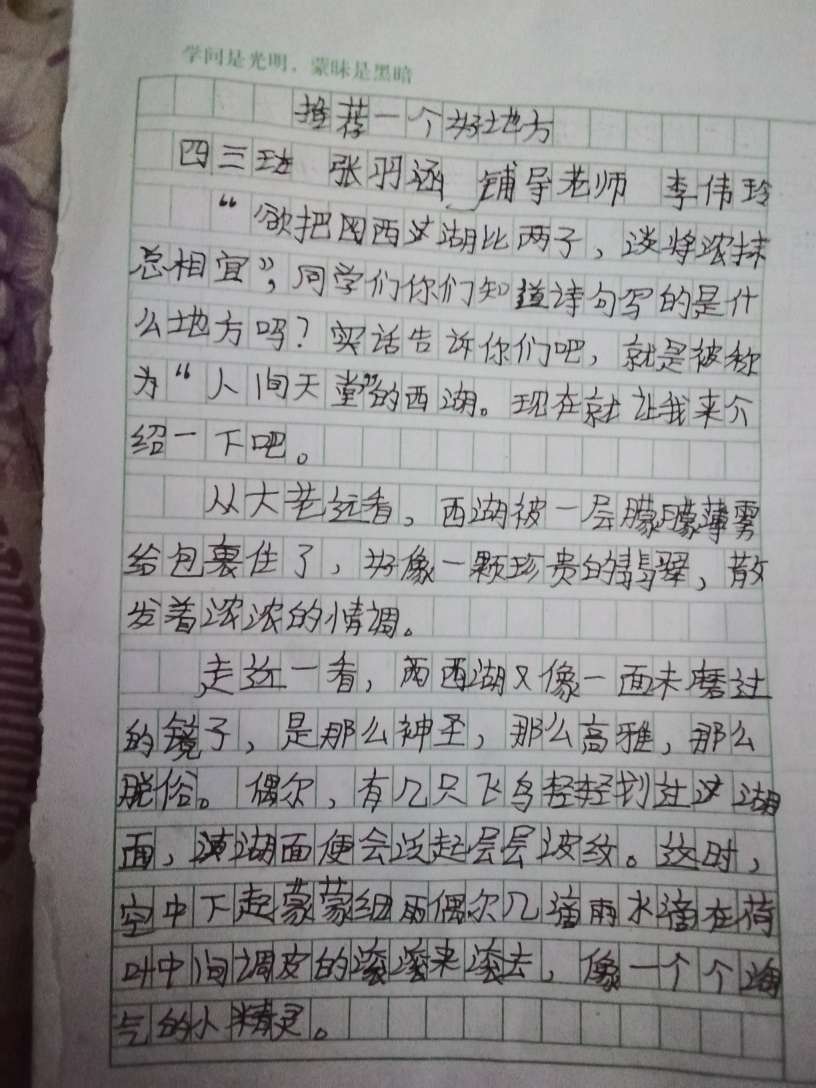 学问是光明，蒙昧是黑暗
推荐一个好地方
四三班 张羽涵 铺导老师 李伟玲
“欲把西湖比两子，淡将浓抹
总相宜”，同学们你们知道诗句写的是什
么地方吗？实话告诉你们吧，就是被称
为“人间天堂”的西湖。现在就让我来介
绍一下吧。
从大老远看，西湖被一层朦朦薄雾
给包裹住了，好像一颗珍贵的翡翠，散
发着浓浓的情调。
走近一看，西湖又像一面未磨过
的镜子，是那么神圣，那么高雅，那么
脱俗。偶尔，有几只飞鸟轻轻划过这湖
面，湖面便会泛起层层波纹。这时，
空中下起蒙蒙细雨偶尔几滴雨水滴在荷
叶中间调皮的滚滚来滚去，像一个个淘
气的小精灵。